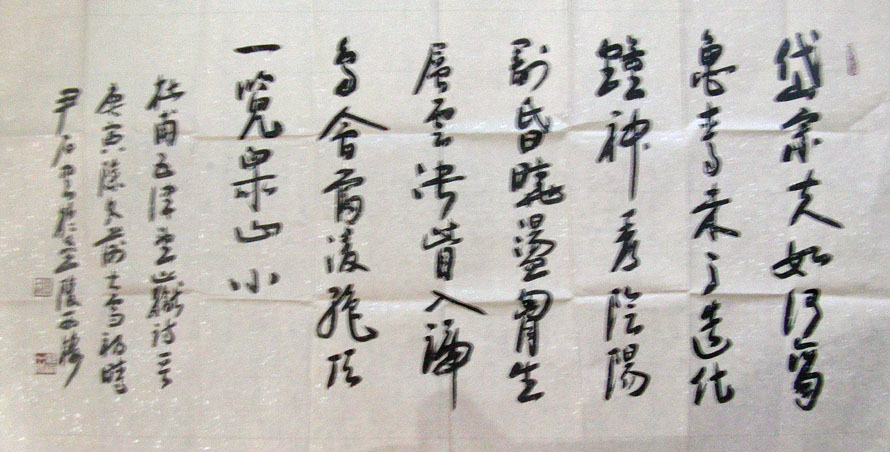 岱宗夫如何齊
魯青未了造化
鍾神秀陰陽
割昏曉盪胷生
層雲決眥入歸
鳥會當凌絕頂
一覽衆山小
杜甫五律望嶽詩一首
庚寅除夕前大雪初晴
尹石書於金陵